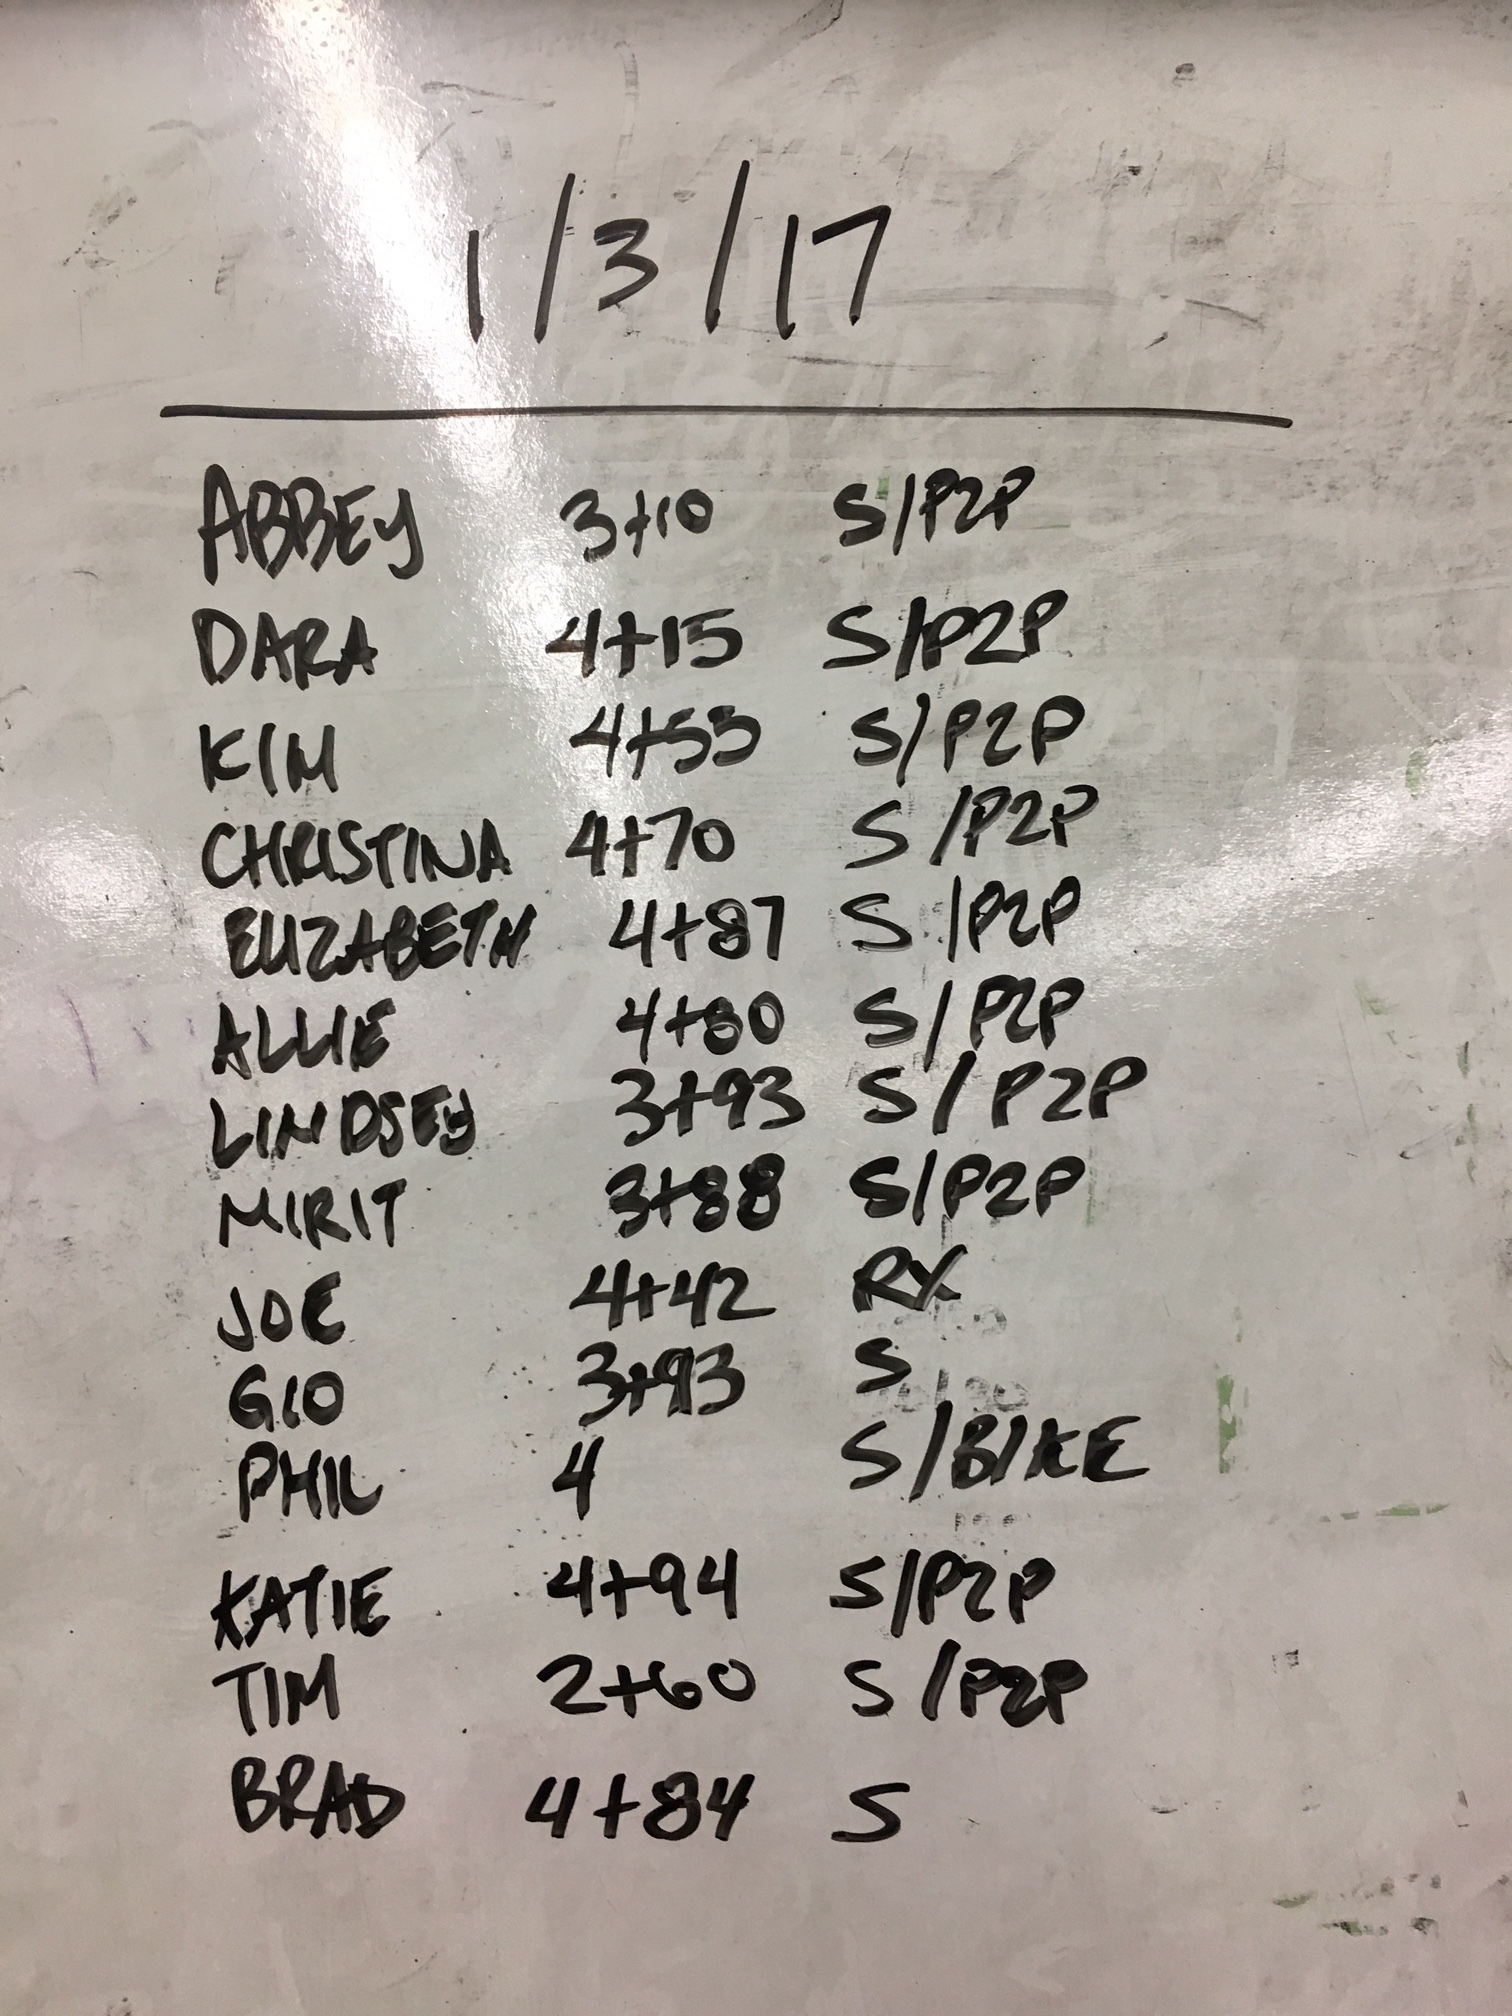 1/3/17
ABBEY 3+10 S/P2P
DARA 4+15 S/P2P
KIM 4+55 S/P2P
CHRISTINA 4+70 S/P2P
ELIZABETH 4+87 S/P2P
ALLIE 4+80 S/P2P
LINDSEY 3+93 S/P2P
MIRIT 3+88 S/P2P
JOE 4+42 RX
GIO 3+93 S
PHIL 4 S/BIKE
KATIE 4+94 S/P2P
TIM 2+60 S/P2P
BRAD 4+84 S